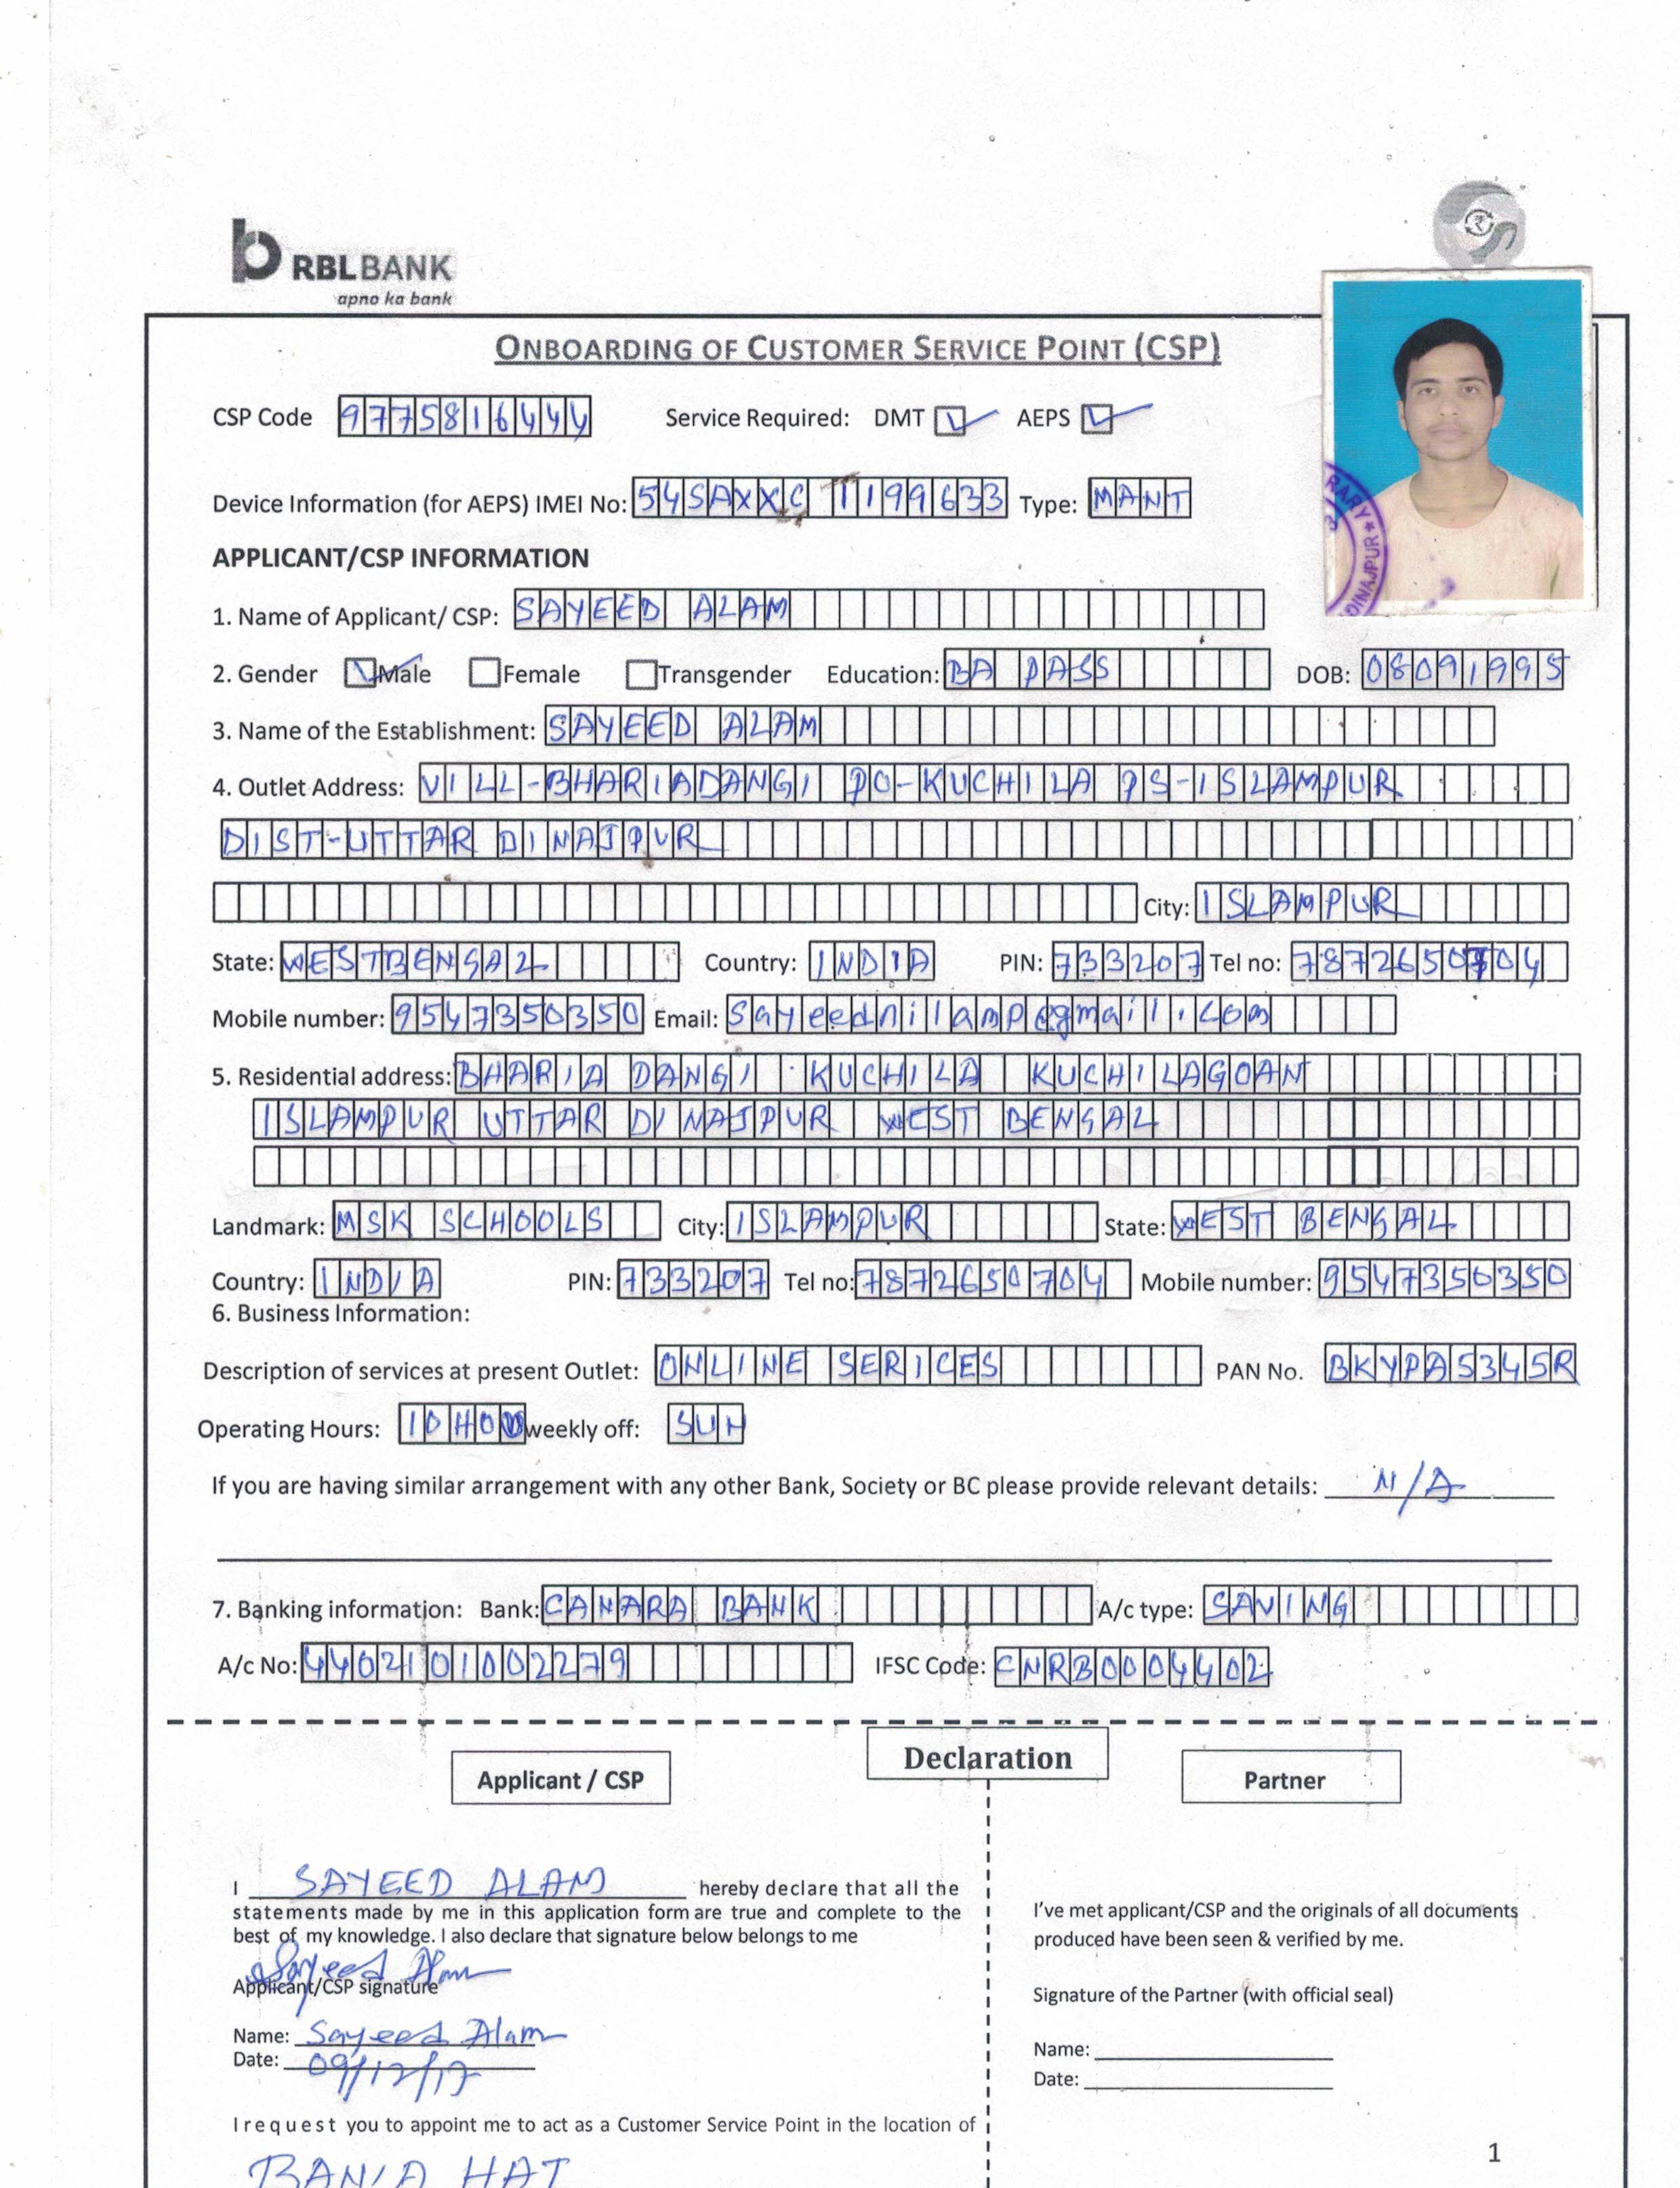 RBLBANK
apno ka bank
ONBOARDING OF CUSTOMER SERVICE POINT (CSP)
CSP Code 9775816444 Service Required: DMT AEPS
Device Information (for AEPS) IMEI No: 54SAXXC 1199633 Type: MANT
RARY * DINAJPUR *
APPLICANT/CSP INFORMATION
1. Name of Applicant/ CSP: SAYEED ALAM
2. Gender Male Female Transgender Education: BA PASS DOB: 08091995
3. Name of the Establishment: SAYEED ALAM
4. Outlet Address: VILL-BHARIADANGI PO-KUCHILA PS-ISLAMPUR
DIST-UTTAR DINAJPUR
City: ISLAMPUR
State: WESTBENGAL Country: INDIA PIN: 733207 Tel no: 7872650704
Mobile number: 9547350350 Email: sayeednilamp@gmail.com
5. Residential address: BHARIA DANGI KUCHILA KUCHILAGOAN
ISLAMPUR UTTAR DINAJPUR WEST BENGAL
Landmark: MSK SCHOOLS City: ISLAMPUR State: WEST BENGAL
Country: INDIA PIN: 733207 Tel no: 7872650704 Mobile number: 9547350350
6. Business Information:
Description of services at present Outlet: ONLINE SERICES PAN No. BKYPA5345R
Operating Hours: 10 weekly off: SUN
If you are having similar arrangement with any other Bank, Society or BC please provide relevant details: N/A
7. Banking information: Bank: CANARA BANK A/c type: SAVING
A/c No: 4402101002279 IFSC Code: CNRB0004402
Declaration
Applicant / CSP Partner
I SAYEED ALAM hereby declare that all the
statements made by me in this application form are true and complete to the
best of my knowledge. I also declare that signature below belongs to me
Sayeed Alam
Applicant/CSP signature
Name: Sayeed Alam
Date: 09/12/17
I request you to appoint me to act as a Customer Service Point in the location of
BANIA HAT
I've met applicant/CSP and the originals of all documents
produced have been seen & verified by me.
Signature of the Partner (with official seal)
Name:
Date:
1